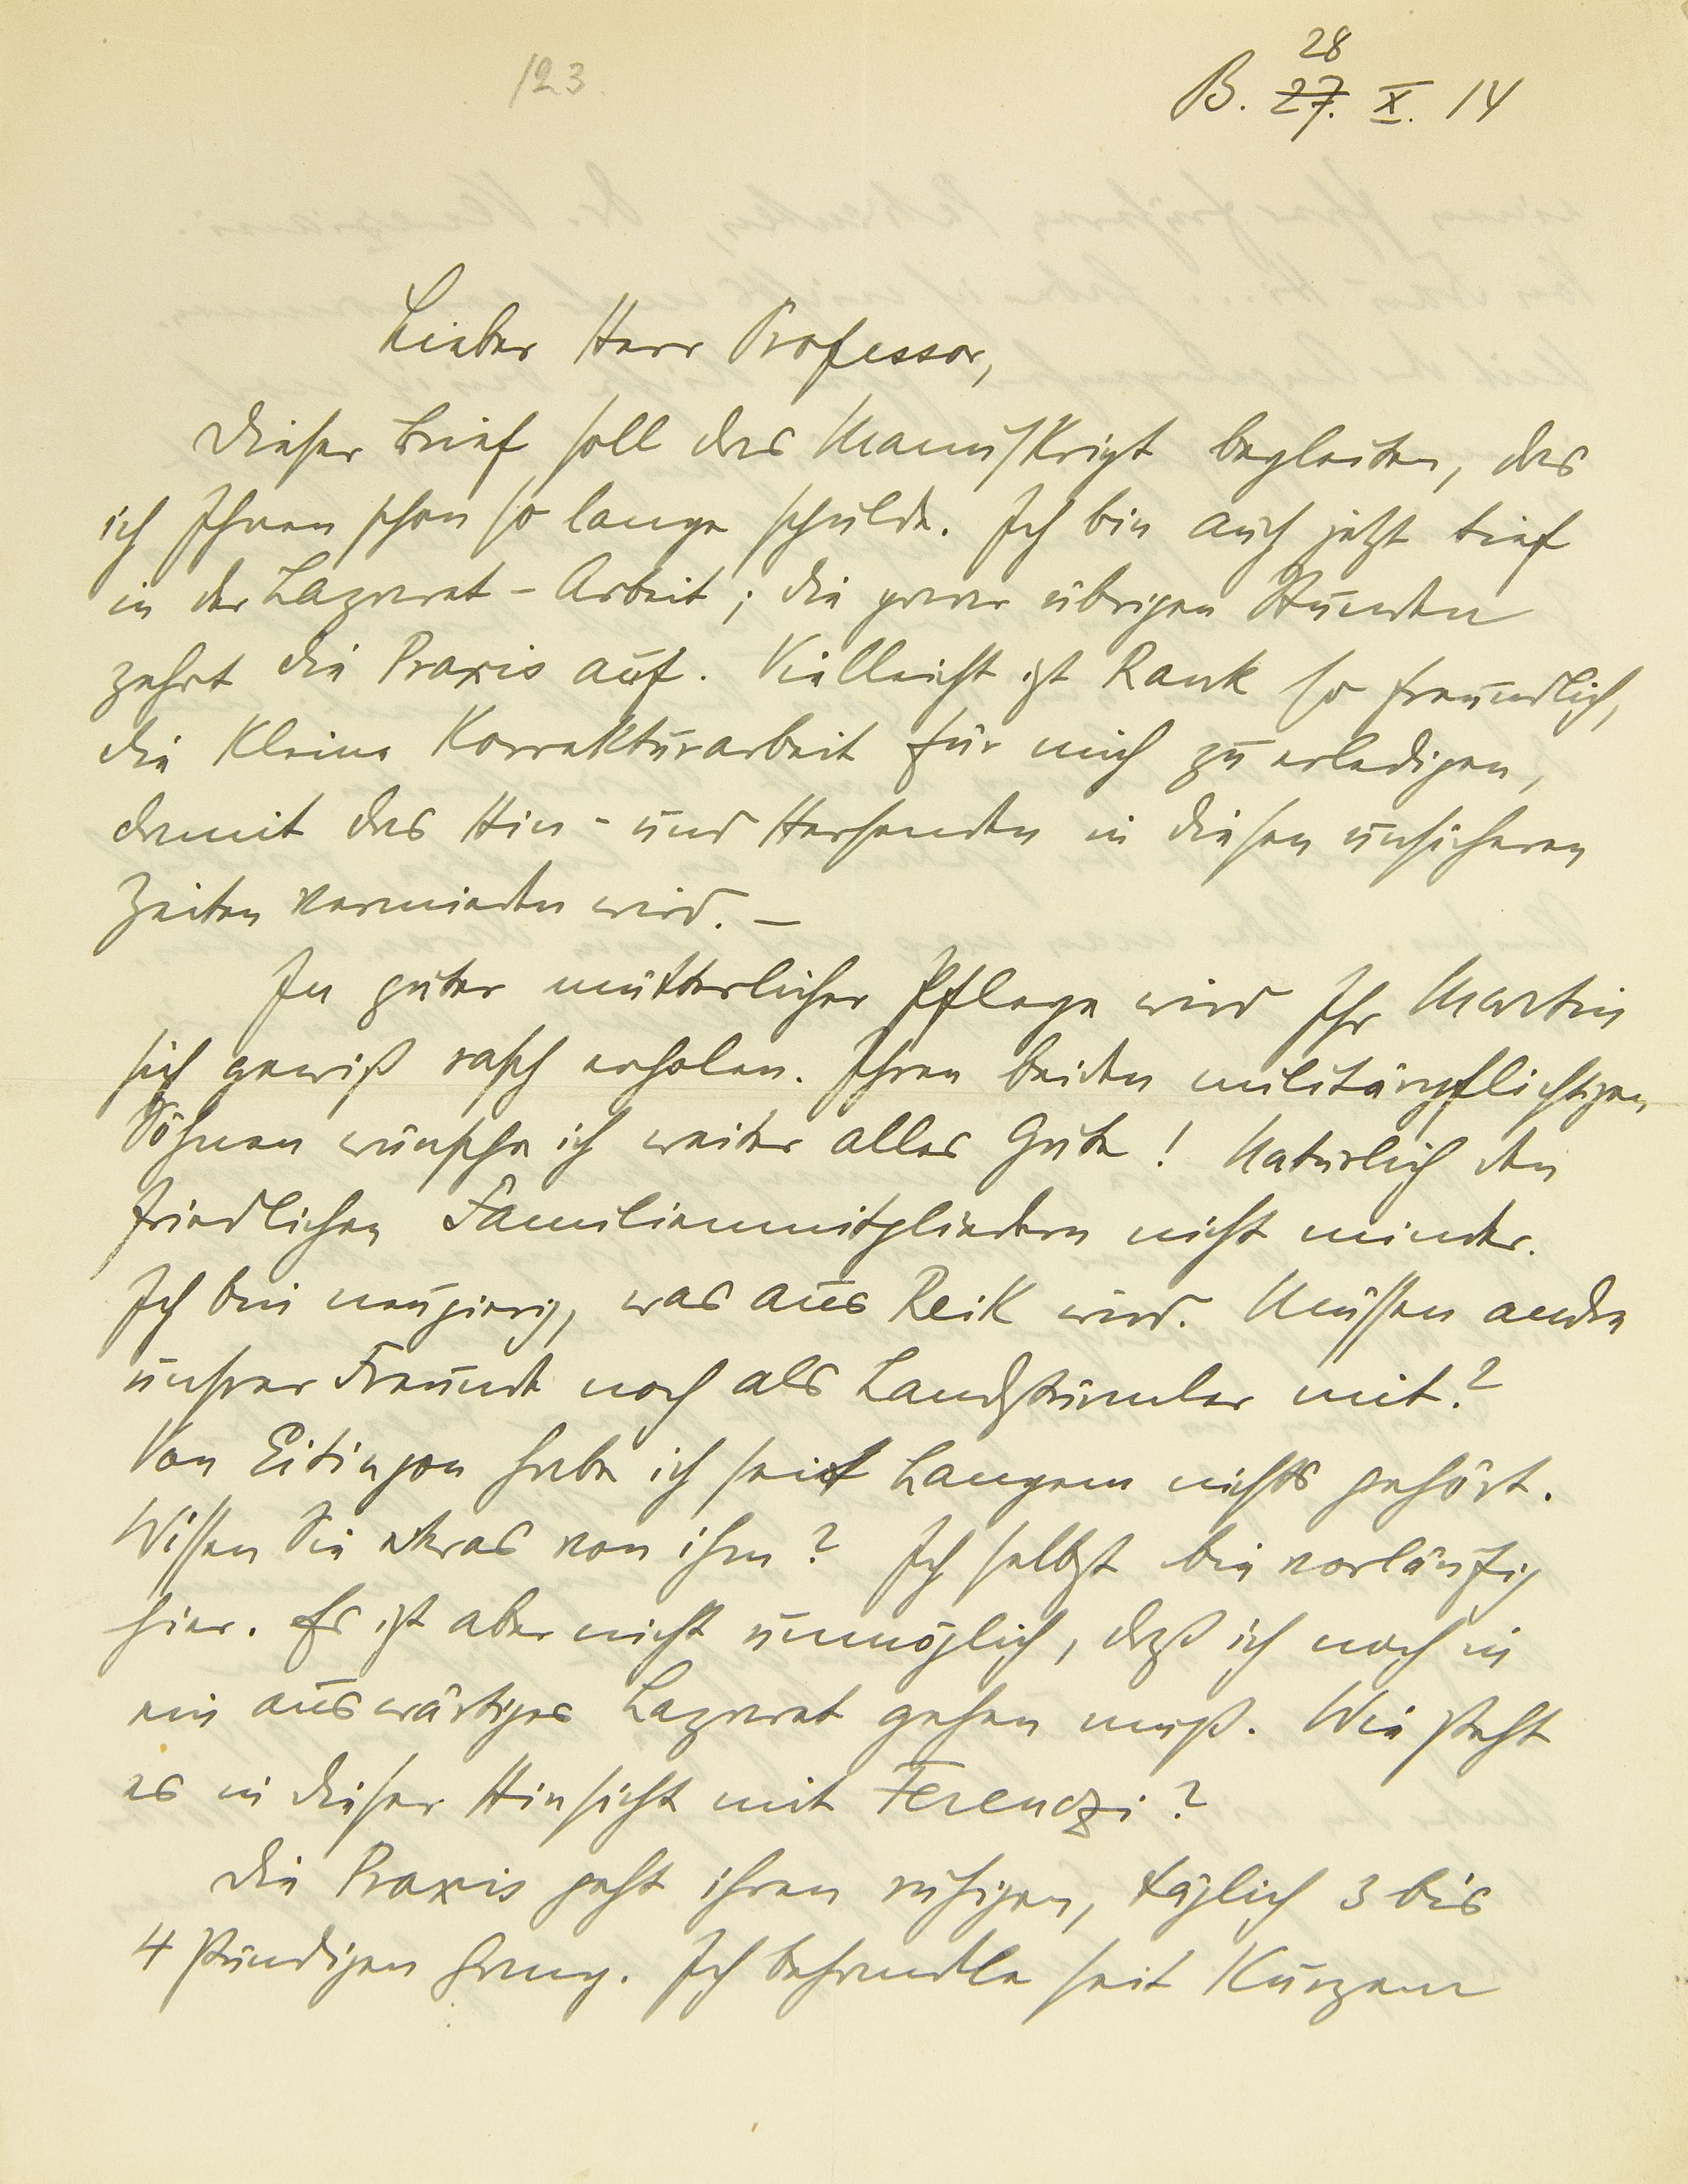 123
28
B. 27. X. 14
Lieber Herr Professor,
Dieser Brief soll das Manuskript begleiten, das
ich Ihnen schon so lange schulde. Ich bin auch jetzt tief
in der Lazaret-Arbeit; die paar übrigen Stunden
zehrt die Praxis auf. Vielleicht ist Rank so freundlich,
die kleine Korrekturarbeit für mich zu erledigen,
damit das Hin- und Hersenden in diesen unsicheren
Zeiten vermieden wird. —
In guter mütterlicher Pflege wird Ihr Martin
sich gewiß rasch erholen. Ihren beiden militärpflichtigen
Söhnen wünsche ich weiter alles Gute! Natürlich den
friedlichen Familienmitgliedern nicht minder.
Ich bin neugierig, was aus Reik wird. Müssen andre
unsrer Freunde noch als Landstürmler mit?
Von Eitingon habe ich seit Langem nichts gehört.
Wissen Sie etwas von ihm? Ich selbst bin vorläufig
hier. Es ist aber nicht unmöglich, daß ich noch in
ein auswärtiges Lazaret gehen muß. Wie steht
es in dieser Hinsicht mit Ferenczi?
Die Praxis geht ihren ruhigen, täglich 3 bis
4 stündigen Gang. Ich behandle seit Kurzem